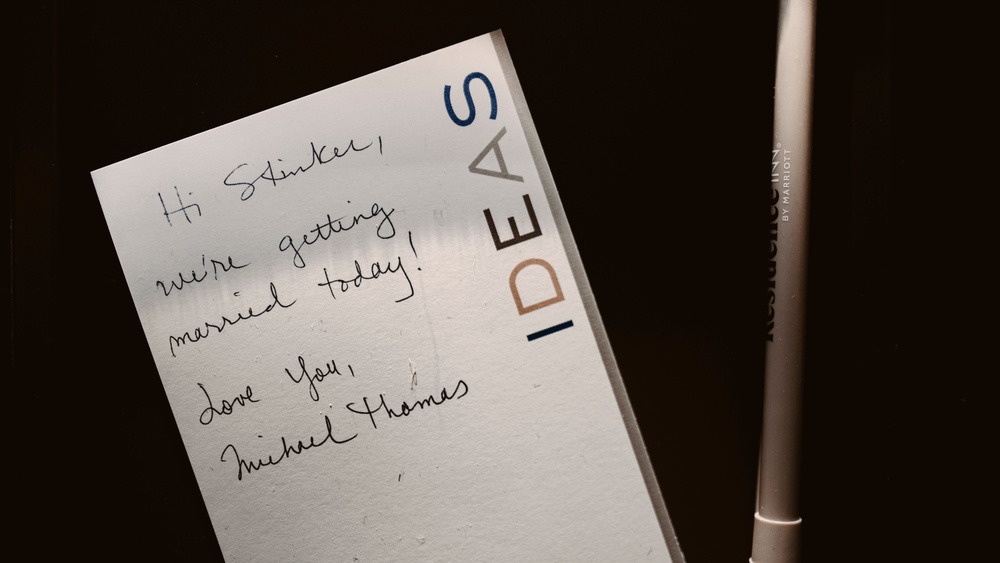 Hi Stinker,
we're getting
married today!
Love You,
Michael Thomas
IDEAS
Residence INN®
BY MARRIOTT